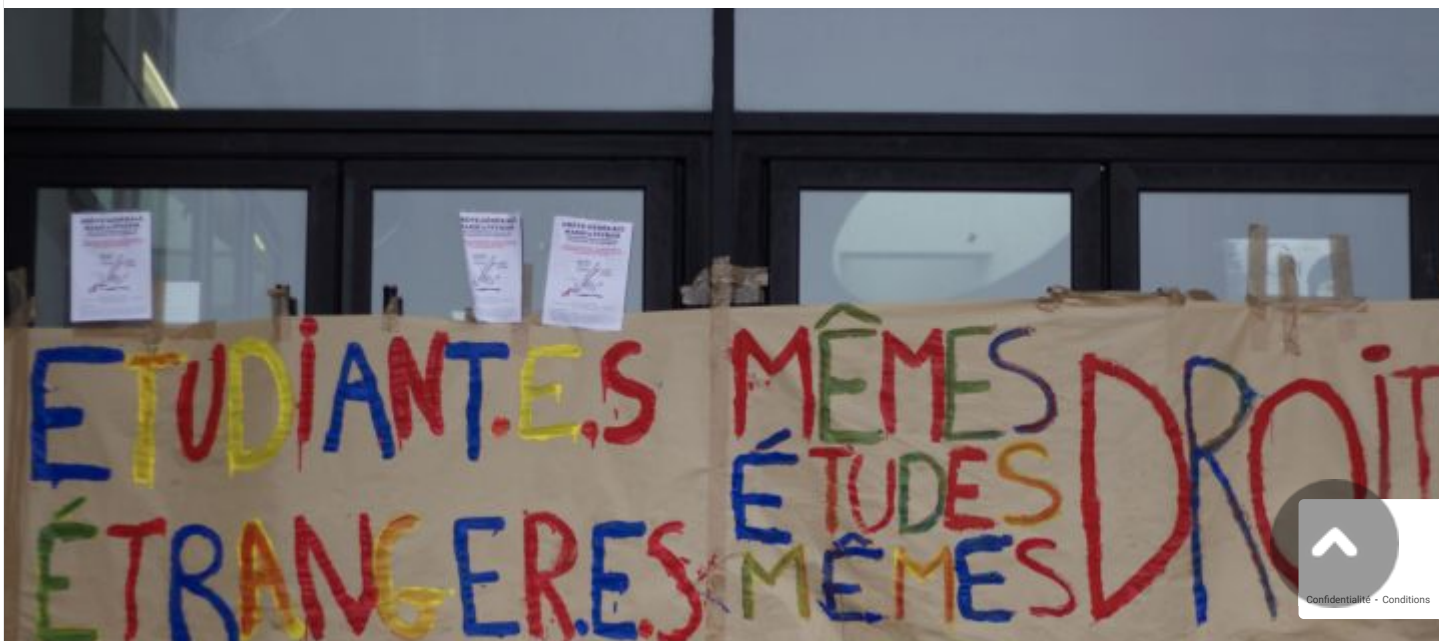 ETUDIANT.E.S
ÉTRANGER.E.S
MÊMES
ÉTUDES
MÊMES
DROIT
Confidentialité - Conditions